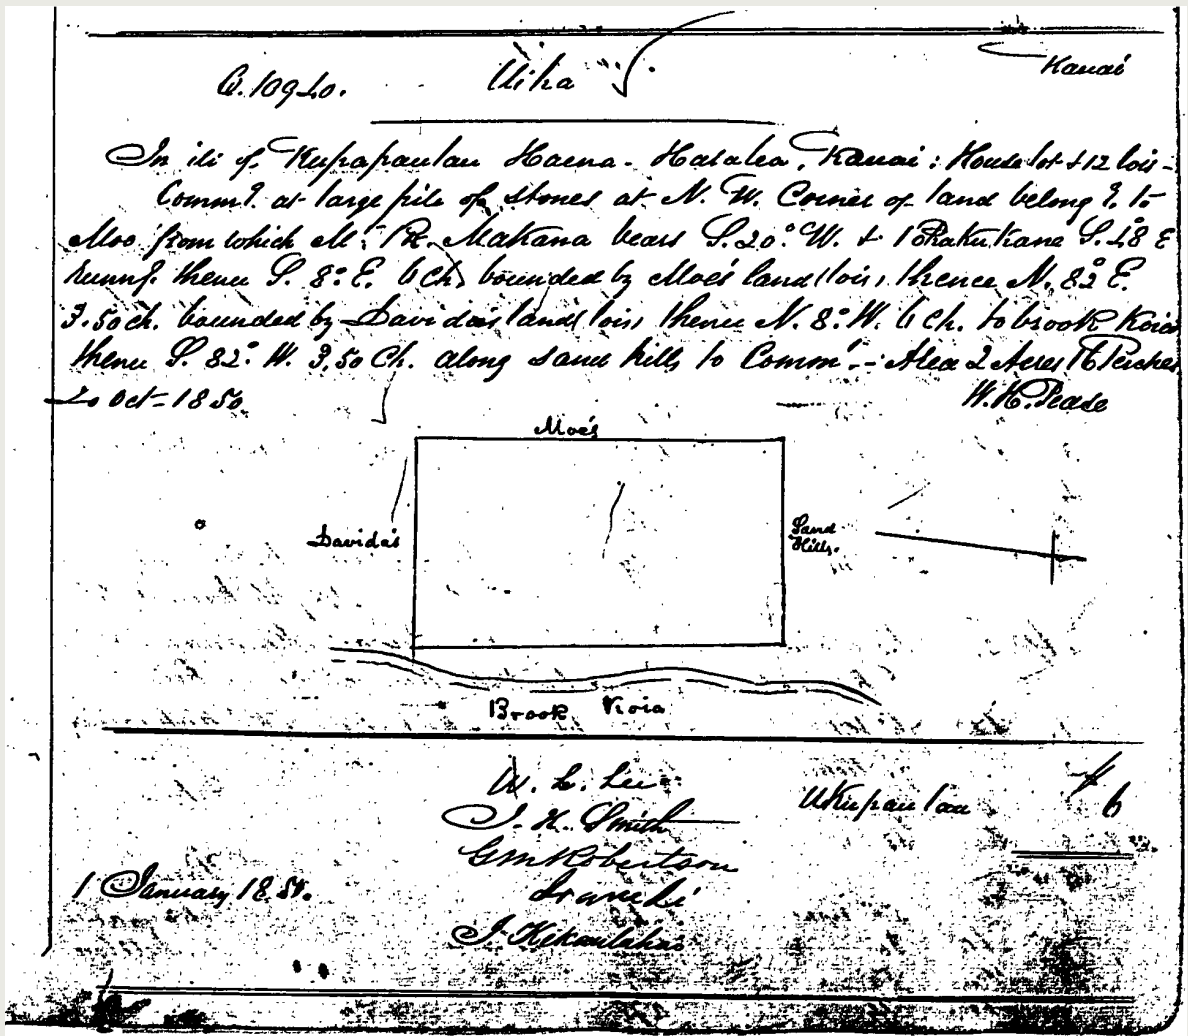 Q. 10940. Uika Kauai
In ili of Kupapaulau Haena - Halalea, Kauai: House lot & 12 lois -
Comm.g. at large pile of stones at N. W. Corner of land belong.g. to
Moo from which Mt. Pk. Makana bears S. 20° W. & S. 48° E
Runn.g. thence S. 8° E. 6 Ch. bounded by Moe's land (lois, thence N. 82° E.
3.50 ch. bounded by Davida's land (lois, thence N. 8° W. 6 Ch. to brook Koia
thence S. 82° W. 3,50 Ch. along sand hills to Comm.t. - Area 2 Acres 16 Perches
20 Oct - 1850. W. H. Pease
Moe's
Davida's
Sand
Hills.
Brook Koia
W. L. Lee
J. H. Smith
Ukupaulau 6
G M Robertson
1 January 18
J. Kekaulahao